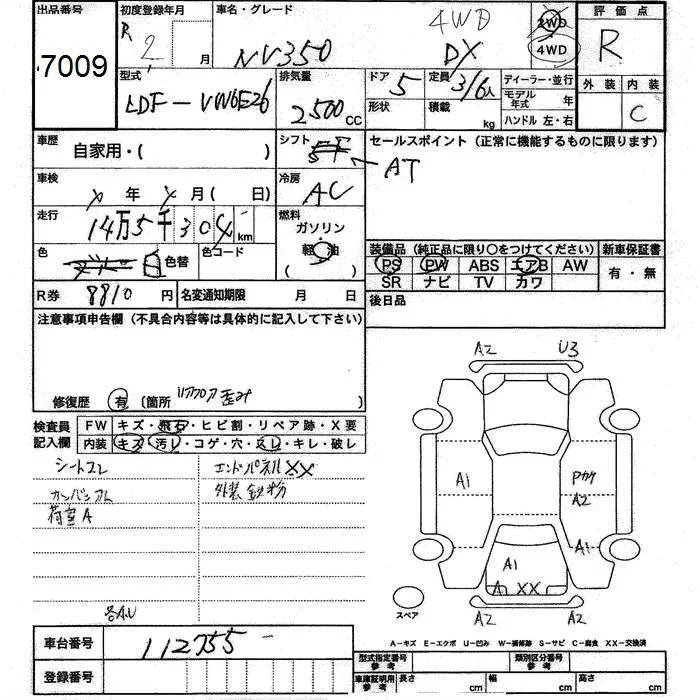 出品番号 初度登録年月 車名・グレード 4WD 2WD 評価点
7009 R 2 月 NV350 DX 4WD R
型式 排気量 ドア 5 定員 3/6人 ディーラー・並行 外装 内装
LDF-VW6E26 2500CC 形状 積載 kg モデル年式 年 C
ハンドル 左・右
車歴 自家用・( ) シフト ← AT セールスポイント (正常に機能するものに限ります)
車検 年 月( 日) 冷房 AC
走行 14万5千304km 燃料 ガソリン
軽油
( )
色 白 色替 色コード
装備品 (純正品に限り○をつけてください) 新車保証書
PS PW ABS エアB AW 有・無
SR ナビ TV カワ
R券 8810円 名変通知期限 月 日 後日品
注意事項申告欄 (不具合内容等は具体的に記入して下さい)
修復歴 有 (箇所 リアフロア歪み )
検査員記入欄 FW キズ・飛石・ヒビ割・リペア跡・X要
内装 キズ・汚レ・コゲ・穴・スレ・キレ・破レ
シートスレ エンドパネルXX
外装鉄粉
荷室A
A2 U3
A1 Pカケ
A2
A1
A1
A XX
スペア A2 A2
A-キズ E-エクボ U-凹み W-補修跡 S-サビ C-腐食 XX-交換済
車台番号 112755
登録番号
型式指定番号 参考 類別区分番号 参考
車庫証明用 参考 長さ cm 幅 cm 高さ cm